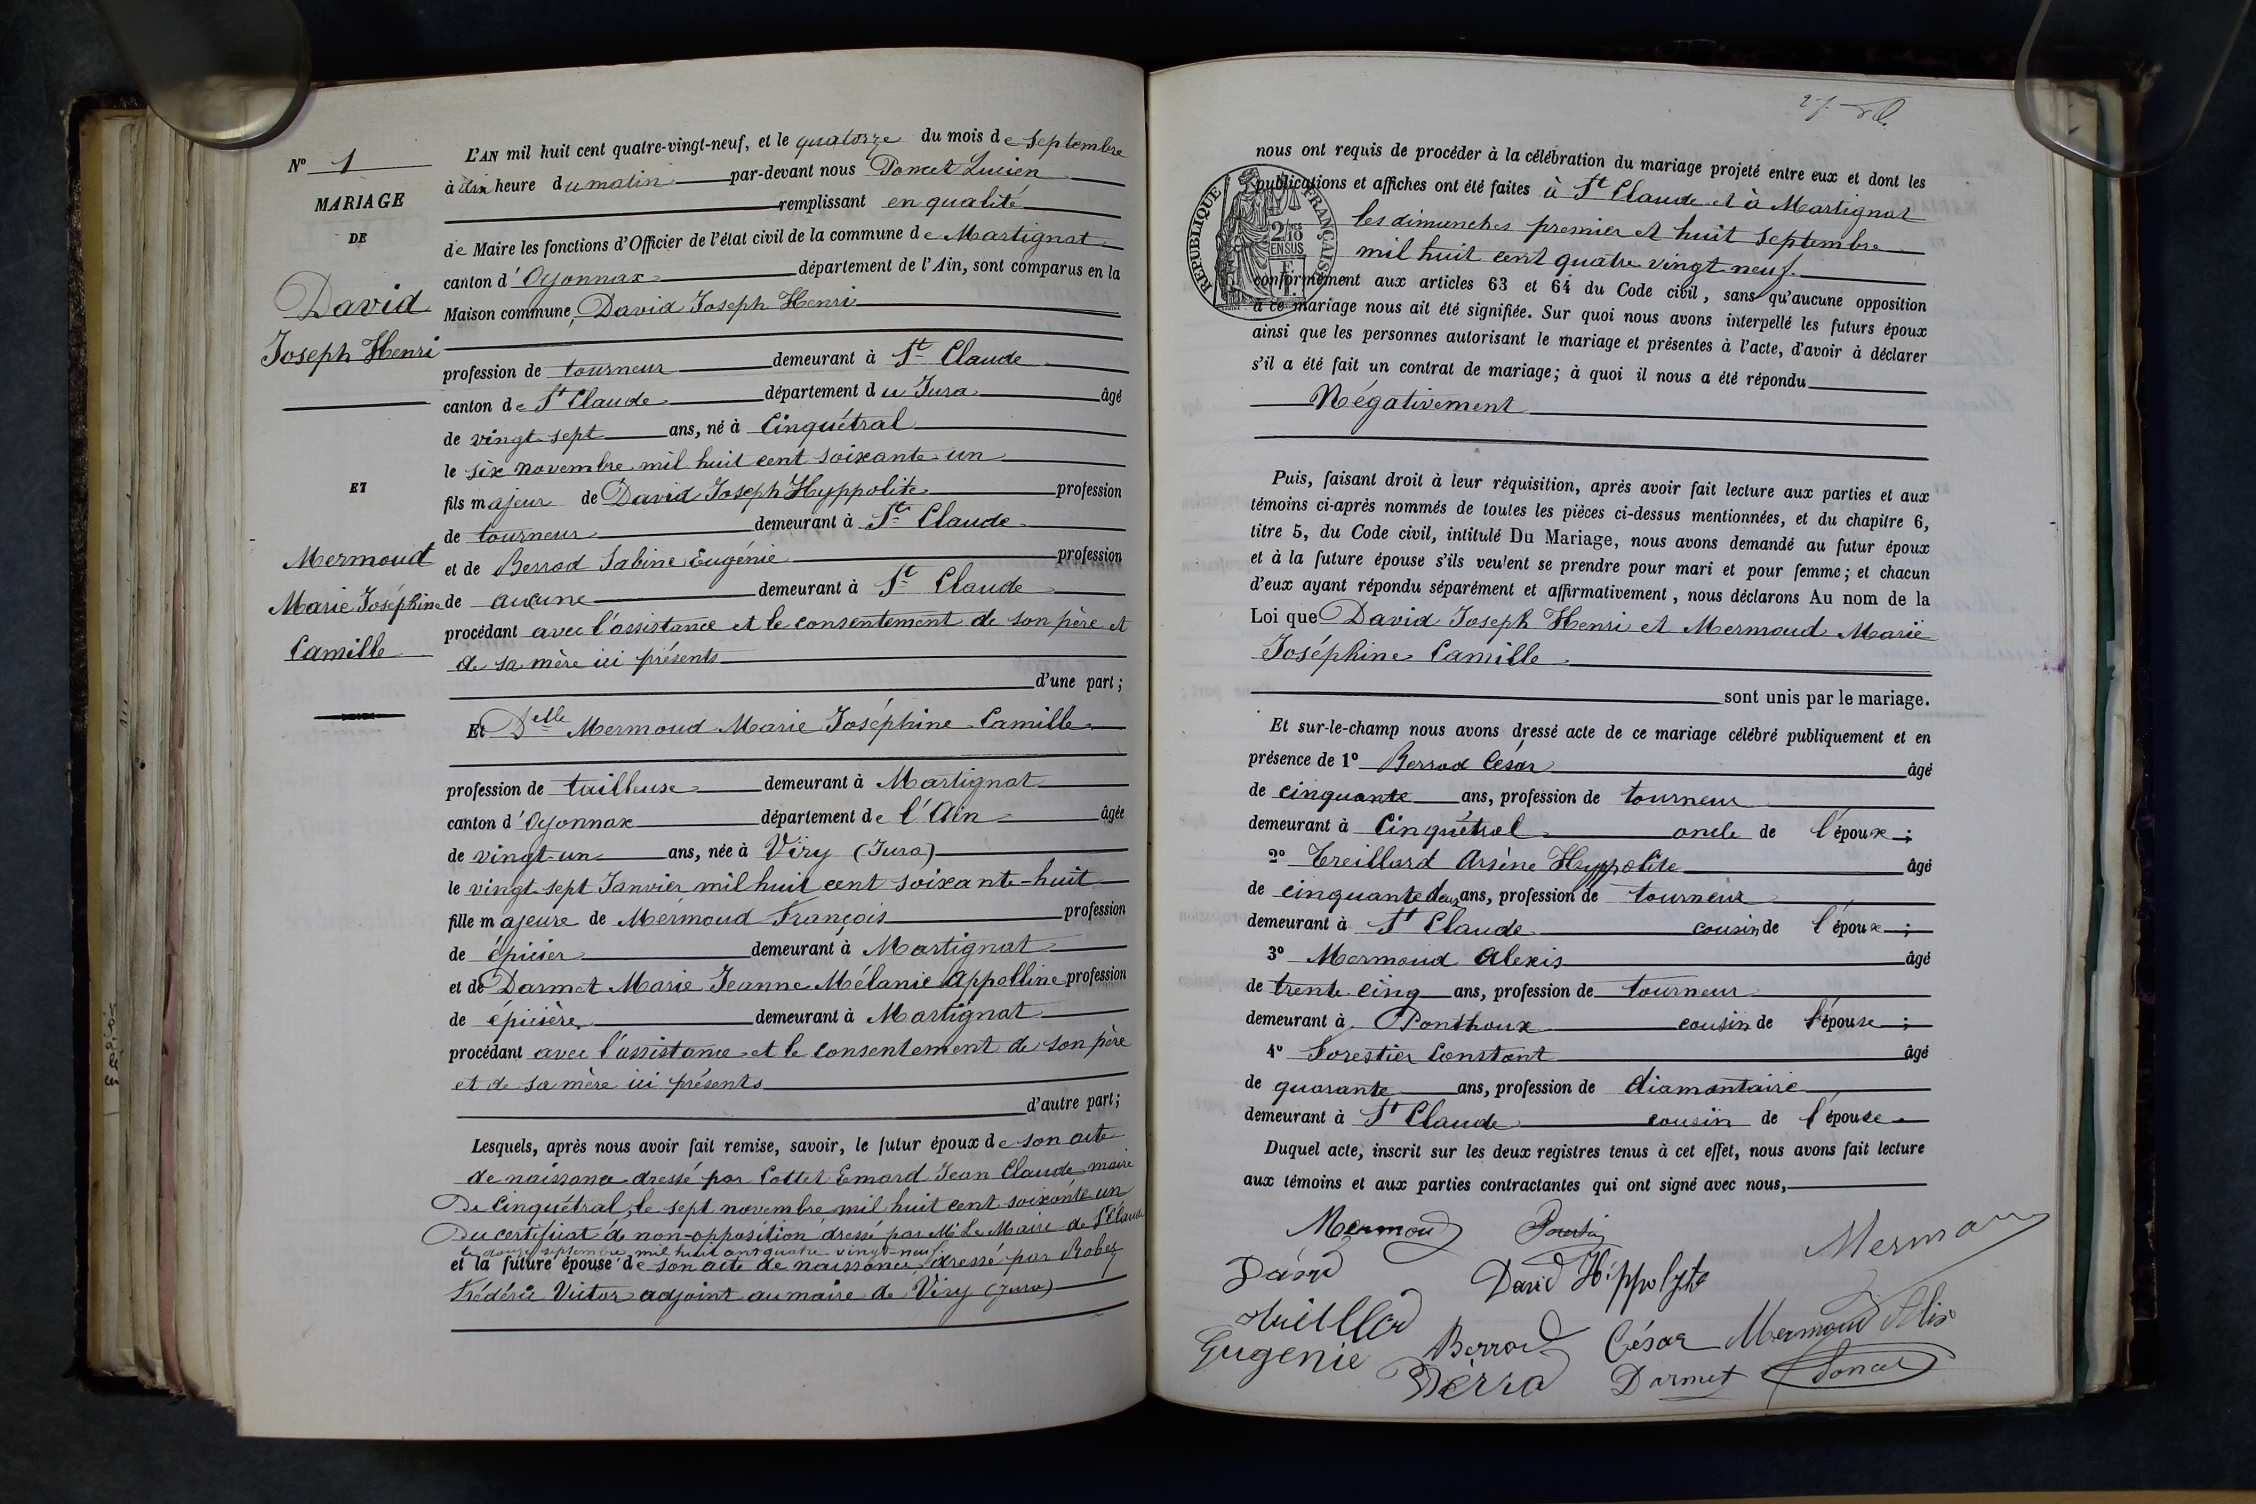 N° 1
MARIAGE
DE
David
Joseph Henri
ET
Mermoud
Marie Joséphine
Camille
L'AN mil huit cent quatre-vingt-neuf, et le quatorze du mois de Septembre
à dix heure du matin par-devant nous Poncet Lucien
remplissant en qualité
de Maire les fonctions d'Officier de l'état civil de la commune de Martignat
canton d'Oyonnax département de l'Ain, sont comparus en la
Maison commune, David Joseph Henri
profession de tourneur demeurant à St Claude
canton de St Claude département du Jura âgé
de vingt-sept ans, né à Cinquétral
le six novembre mil huit cent soixante un
fils majeur de David Joseph Hyppolite profession
de tourneur demeurant à St Claude
et de Berrod Sabine Eugénie profession
de aucune demeurant à St Claude
procédant avec l'assistance et le consentement de son père et
de sa mère ici présents
d'une part;
Et Delle Mermoud Marie Joséphine Camille
profession de tailleuse demeurant à Martignat
canton d'Oyonnax département de l'Ain âgée
de vingt-un ans, née à Viry (Jura)
le vingt sept Janvier mil huit cent soixante-huit
fille majeure de Mermoud François profession
de épicier demeurant à Martignat
et de Darmet Marie Jeanne Mélanie Appolline profession
de épicière demeurant à Martignat
procédant avec l'assistance et le consentement de son père
et de sa mère ici présents
d'autre part;
Lesquels, après nous avoir fait remise, savoir, le futur époux de son acte
de naissance dressé par Cottet Emard Jean Claude maire
De Cinquétral, le sept novembre mil huit cent soixante un
Du certificat de non-opposition dressé par Mr Le Maire de St Claude
le douze septembre mil huit cent quatre-vingt-neuf
et la future épouse de son acte de naissance dressé par Robez
Frédéric Victor adjoint au maire de Viry (Jura)
nous ont requis de procéder à la célébration du mariage projeté entre eux et dont les
publications et affiches ont été faites à St Claude et à Martignat
les dimanches premier et huit Septembre
mil huit cent quatre vingt neuf.
RÉPUBLIQUE FRANÇAISE
conformément aux articles 63 et 64 du Code civil, sans qu'aucune opposition
à ce mariage nous ait été signifiée. Sur quoi nous avons interpellé les futurs époux
ainsi que les personnes autorisant le mariage et présentes à l'acte, d'avoir à déclarer
s'il a été fait un contrat de mariage; à quoi il nous a été répondu
Négativement
Puis, faisant droit à leur réquisition, après avoir fait lecture aux parties et aux
témoins ci-après nommés de toutes les pièces ci-dessus mentionnées, et du chapitre 6,
titre 5, du Code civil, intitulé Du Mariage, nous avons demandé au futur époux
et à la future épouse s'ils veulent se prendre pour mari et pour femme; et chacun
d'eux ayant répondu séparément et affirmativement, nous déclarons Au nom de la
Loi que David Joseph Henri et Mermoud Marie
Joséphine Camille
sont unis par le mariage.
Et sur-le-champ nous avons dressé acte de ce mariage célébré publiquement et en
présence de 1° Berrod César âgé
de cinquante ans, profession de tourneur
demeurant à Cinquétral oncle de l'époux;
2° Treillard Arsène Hyppolite âgé
de cinquante deux ans, profession de tourneur
demeurant à St Claude cousin de l'époux;
3° Mermoud Alexis âgé
de trente cinq ans, profession de tourneur
demeurant à Ponthoux cousin de l'épouse;
4° Forestier Constant âgé
de quarante ans, profession de diamantaire
demeurant à St Claude cousin de l'épouse
Duquel acte, inscrit sur les deux registres tenus à cet effet, nous avons fait lecture
aux témoins et aux parties contractantes qui ont signé avec nous,
Mermoud
David
David Hippolyte
Eugenie Berrod César Mermoud Alix
Darmet Poncet